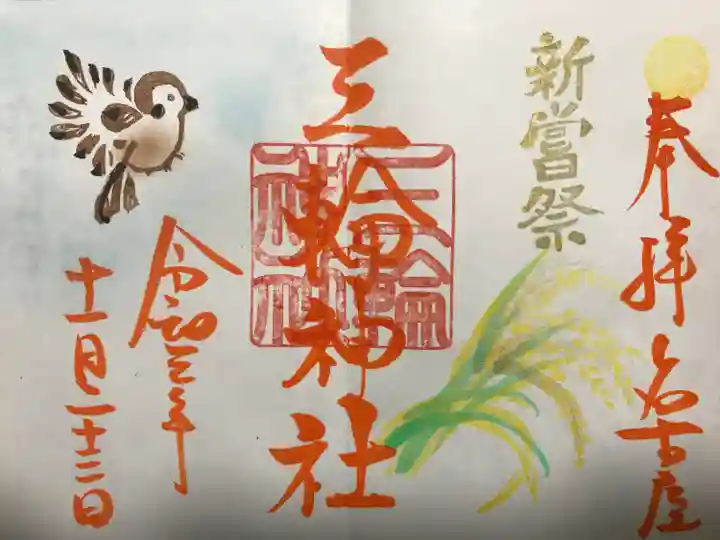 奉拝 名古屋
新嘗祭
三輪神社
三輪神社
令和三年
十一月二十三日